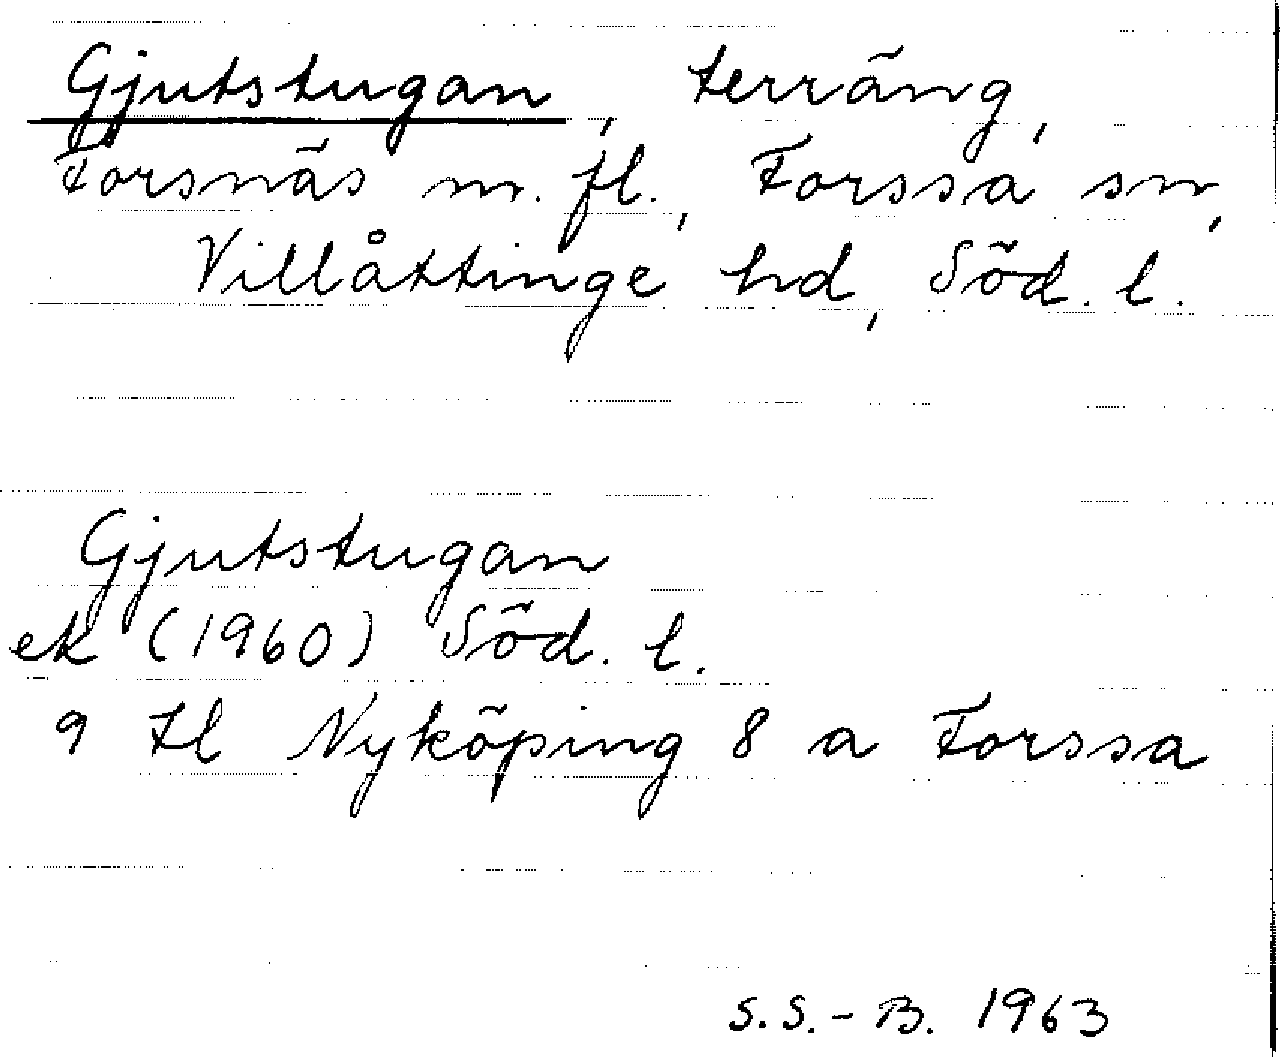 Gjutstugan, terräng,
Forsnäs m. fl., Forssa sn,
Villåttinge hd, Söd. l.
Gjutstugan
ek (1960) Söd. l.
9 H l Nyköping 8 a Forssa
S.S.-B. 1963